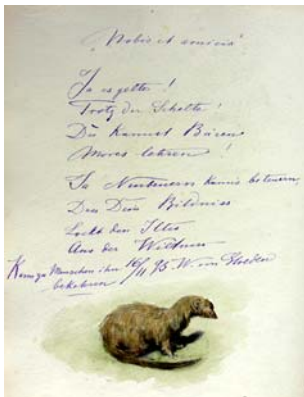 "Nobis et amicis"
Ja es gelte!
Trotz der Schelte!
Du kannst Bären
Mores lehren!
In Nurbauern kannis beteuern,
Dass Dein Bildniss
Lockt den Iltis
Aus der Wildniss
Kann ja Menschen ihn 16/11 95. W. von
bekehren